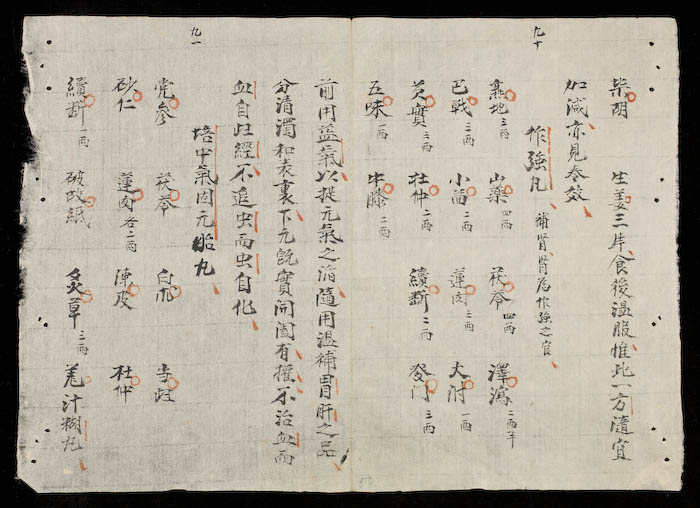 九十
柴胡 生姜三片食後温服惟此一方隨宜
加減亦見奏效
作強丸 補腎腎為作強之官
熹地三两 山藥四两 茯苓四两 澤瀉二两半
巴戟二两 小茴二两 蓮肉二两 大附一两
芡實二两 杜仲二两 續断二两 三两
五味一两 牛膝二两
前用益氣以提元氣之消隨用温補胃肝之品
分清濁和表裏下元既實開闔有權不治血而
血自歸經不追虫而虫自化
九一
培中氣固元胎丸
党參 茯苓 白朮 当歸
砂仁 蓮肉各二两 陳皮 杜仲
續断一两 破故紙 炙草三两 羌汁糊丸